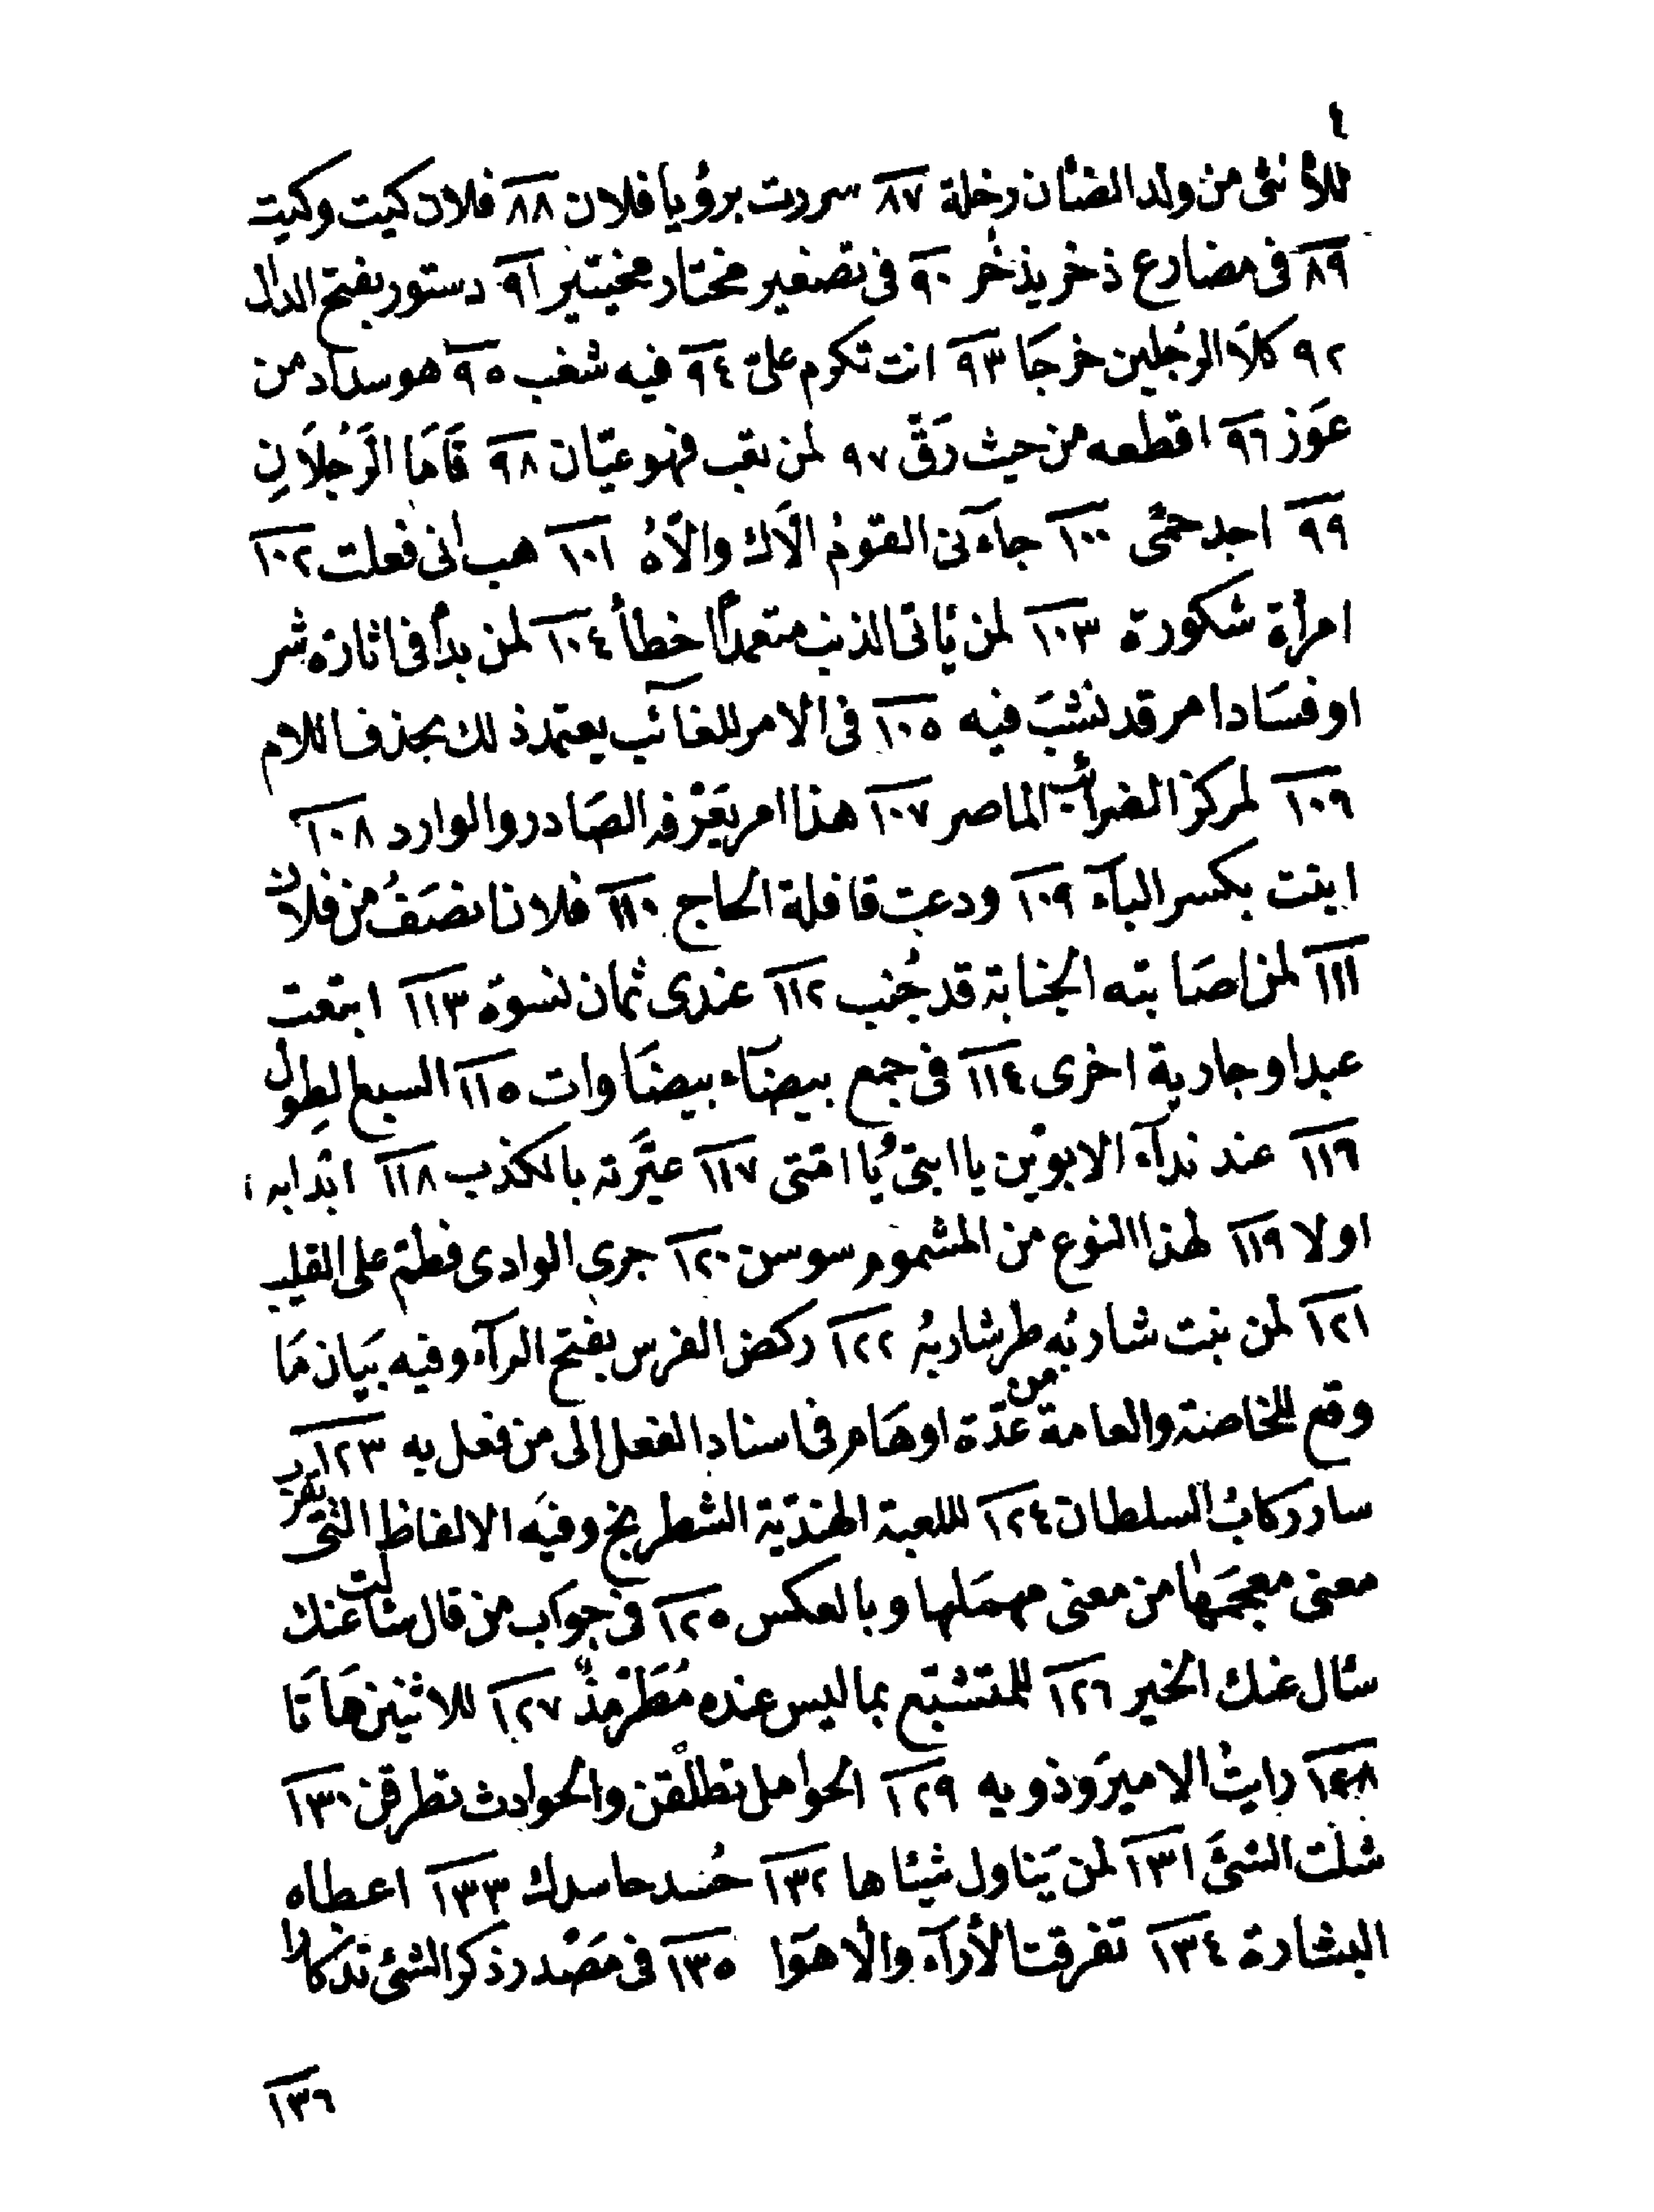 ٤
للأنثى من ولد الضأن رخلة ٨٧ سررت برؤيا فلان ٨٨ فلان كيت وكيت
٨٩ فى مضارع ذخر يذخُر ٩٠ فى تصغير مختار مخيتير ٩١ دستور بفتح الدال
٩٢ كلاَ الرجُلين خرجَا ٩٣ انت تكرم علىّ ٩٤ فيه شغب ٩٥ هو سداد من
عَوَز ٩٦ اقطعه من حيث رَقّ ٩٧ لمن تعب فهو عيّان ٩٨ قَامَا الرَّجُلَانِ
٩٩ اجد حمَّى ١٠٠ جاَءنى القومُ الّاك والّاهُ ١٠١ هب انى فعلت ١٠٢
امرأة شكورة ١٠٣ لمن يَاتى الذنب متعمداً اخطأ ١٠٤ لمن بدأ فى اثارة شر
او فسَادا مر قد نشبَ فيه ١٠٥ فى الامر للغائب يعتمد ذلك بحذف اللام
١٠٦ لمركز الضرائب الماصر ١٠٧ هذا امر يَعْرفه الصَادر والوارد ١٠٨
ابنت بكسر الباَء ١٠٩ ودعت قافلة الحاج ١١٠ فلان انصَفُ من فلان
١١١ لمن اصَابته الجنابة قد جُنب ١١٢ عندى ثمان نسوة ١١٣ ابتعت
عبدا وجارية اخرى ١١٤ فى جمع بيضآء بيضَاوات ١١٥ السبع الطِول
١١٦ عند ندآء الابوَين يا ابتى يَا امّتى ١١٧ عيَّرته بالكذب ١١٨ ابدَا به
اولا ١١٩ لهذا النوع من المشموم سوسن ١٢٠ جرى الوادى فطمّ على القليب
١٢١ لمن بنت شاربُه طر شاربُه ١٢٢ ركض الفرس بفتح الرآء وفيه بيَان مَا
وقع للخاصة والعامة من عدّة اوهَام فى اسناد الفعل الى من فعل به ١٢٣
سار ركابُ السلطان ١٢٤ للعبة الهنديّة الشطرنج وفيَه الالفاظ التى يقرب
معنى معجمَها من معنى مهمَلها وبالعكس ١٢٥ فى جوَاب من قال سَالت عنك
سئال عنك الخير ١٢٦ للمتشبّع بما ليس عنده مُطَرْمِذٌ ١٢٧ للاثنين هَاتَا
١٢٨ رايتُ الاميرَ وذويه ١٢٩ الحوامل تطلقن والحوادث تطرقن ١٣٠
شلت الشئَ ١٣١ لمن يَناول شيئا ها ١٣٢ حُسد حاسدك ١٣٣ اعطاه
البشارة ١٣٤ تفرقت الأرآء والأهوَا ١٣٥ فى مَصْدر ذكر الشئ تذكارا
١٣٦